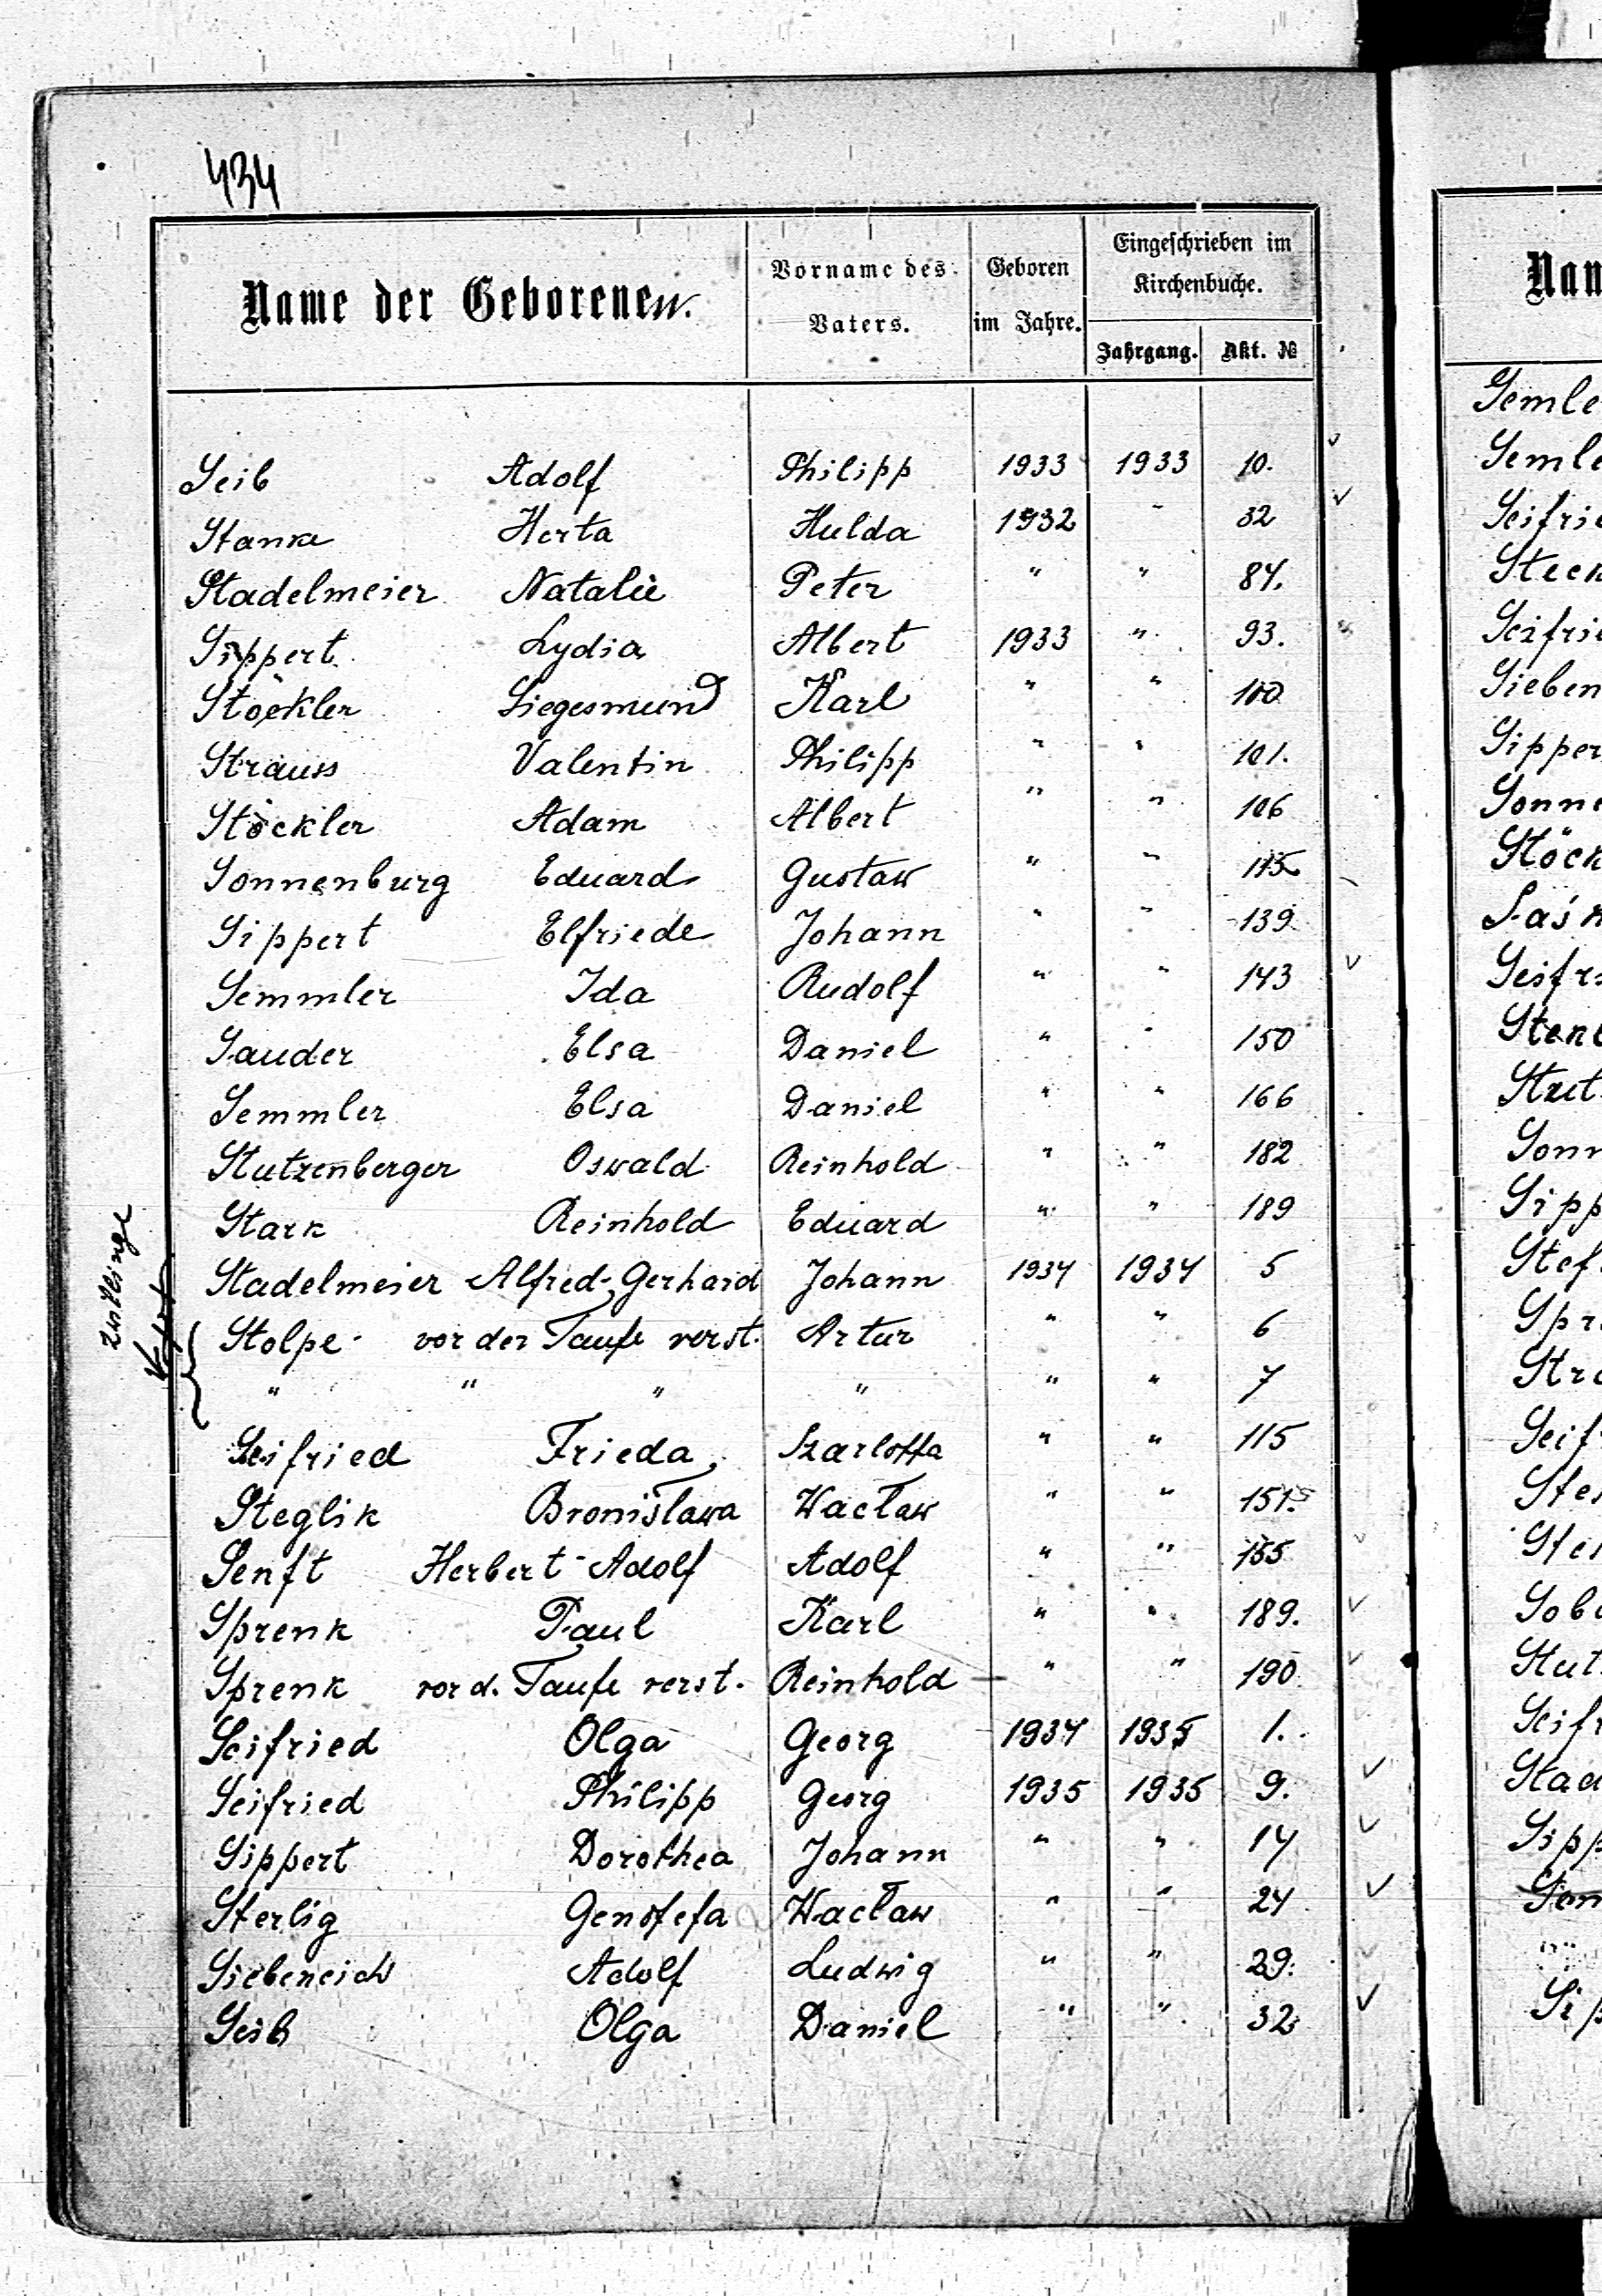 434
Name der Geborenen.
Vorname des Vaters.
Geboren im Jahre.
Eingeschrieben im Kirchenbuche.
Jahrgang. Akt. №
Seib Adolf Philipp 1933 1933 10.
Stanke Herta Hulda 1932 " 32
Stadelmeier Natalie Peter " " 84.
Sippert Lydia Albert 1933 " 93.
Stöckler Siegesmund Karl " " 100
Strauss Valentin Philipp " " 101.
Stöckler Adam Albert " " 106
Sonnenburg Eduard Gustaw " " 115
Sippert Elfriede Johann " " 139
Semmler Ida Rudolf " " 143
Sauder Elsa Daniel " " 150
Semmler Elsa Daniel " " 166
Stutzenberger Oswald Reinhold " " 182
Stark Reinhold Eduard " " 189
Stadelmeier Alfred-Gerhard Johann 1934 1934 5
Stolpe vor der Taufe verst. Artur " " 6
" " " " " " 7
Seifried Frieda Szarlotta " " 115
Steglik Bronisława Wacław " " 151.
Senft Herbert-Adolf Adolf " " 155
Sprenk Paul Karl " " 189.
Sprenk vor d. Taufe verst. Reinhold " " 190
Seifried Olga Georg 1934 1935 1.
Seifried Philipp Georg 1935 1935 9.
Sippert Dorothea Johann " " 14
Sterlig Genofefa Wacław " " 24
Siebeneich Adolf Ludwig " " 29.
Seib Olga Daniel " " 32